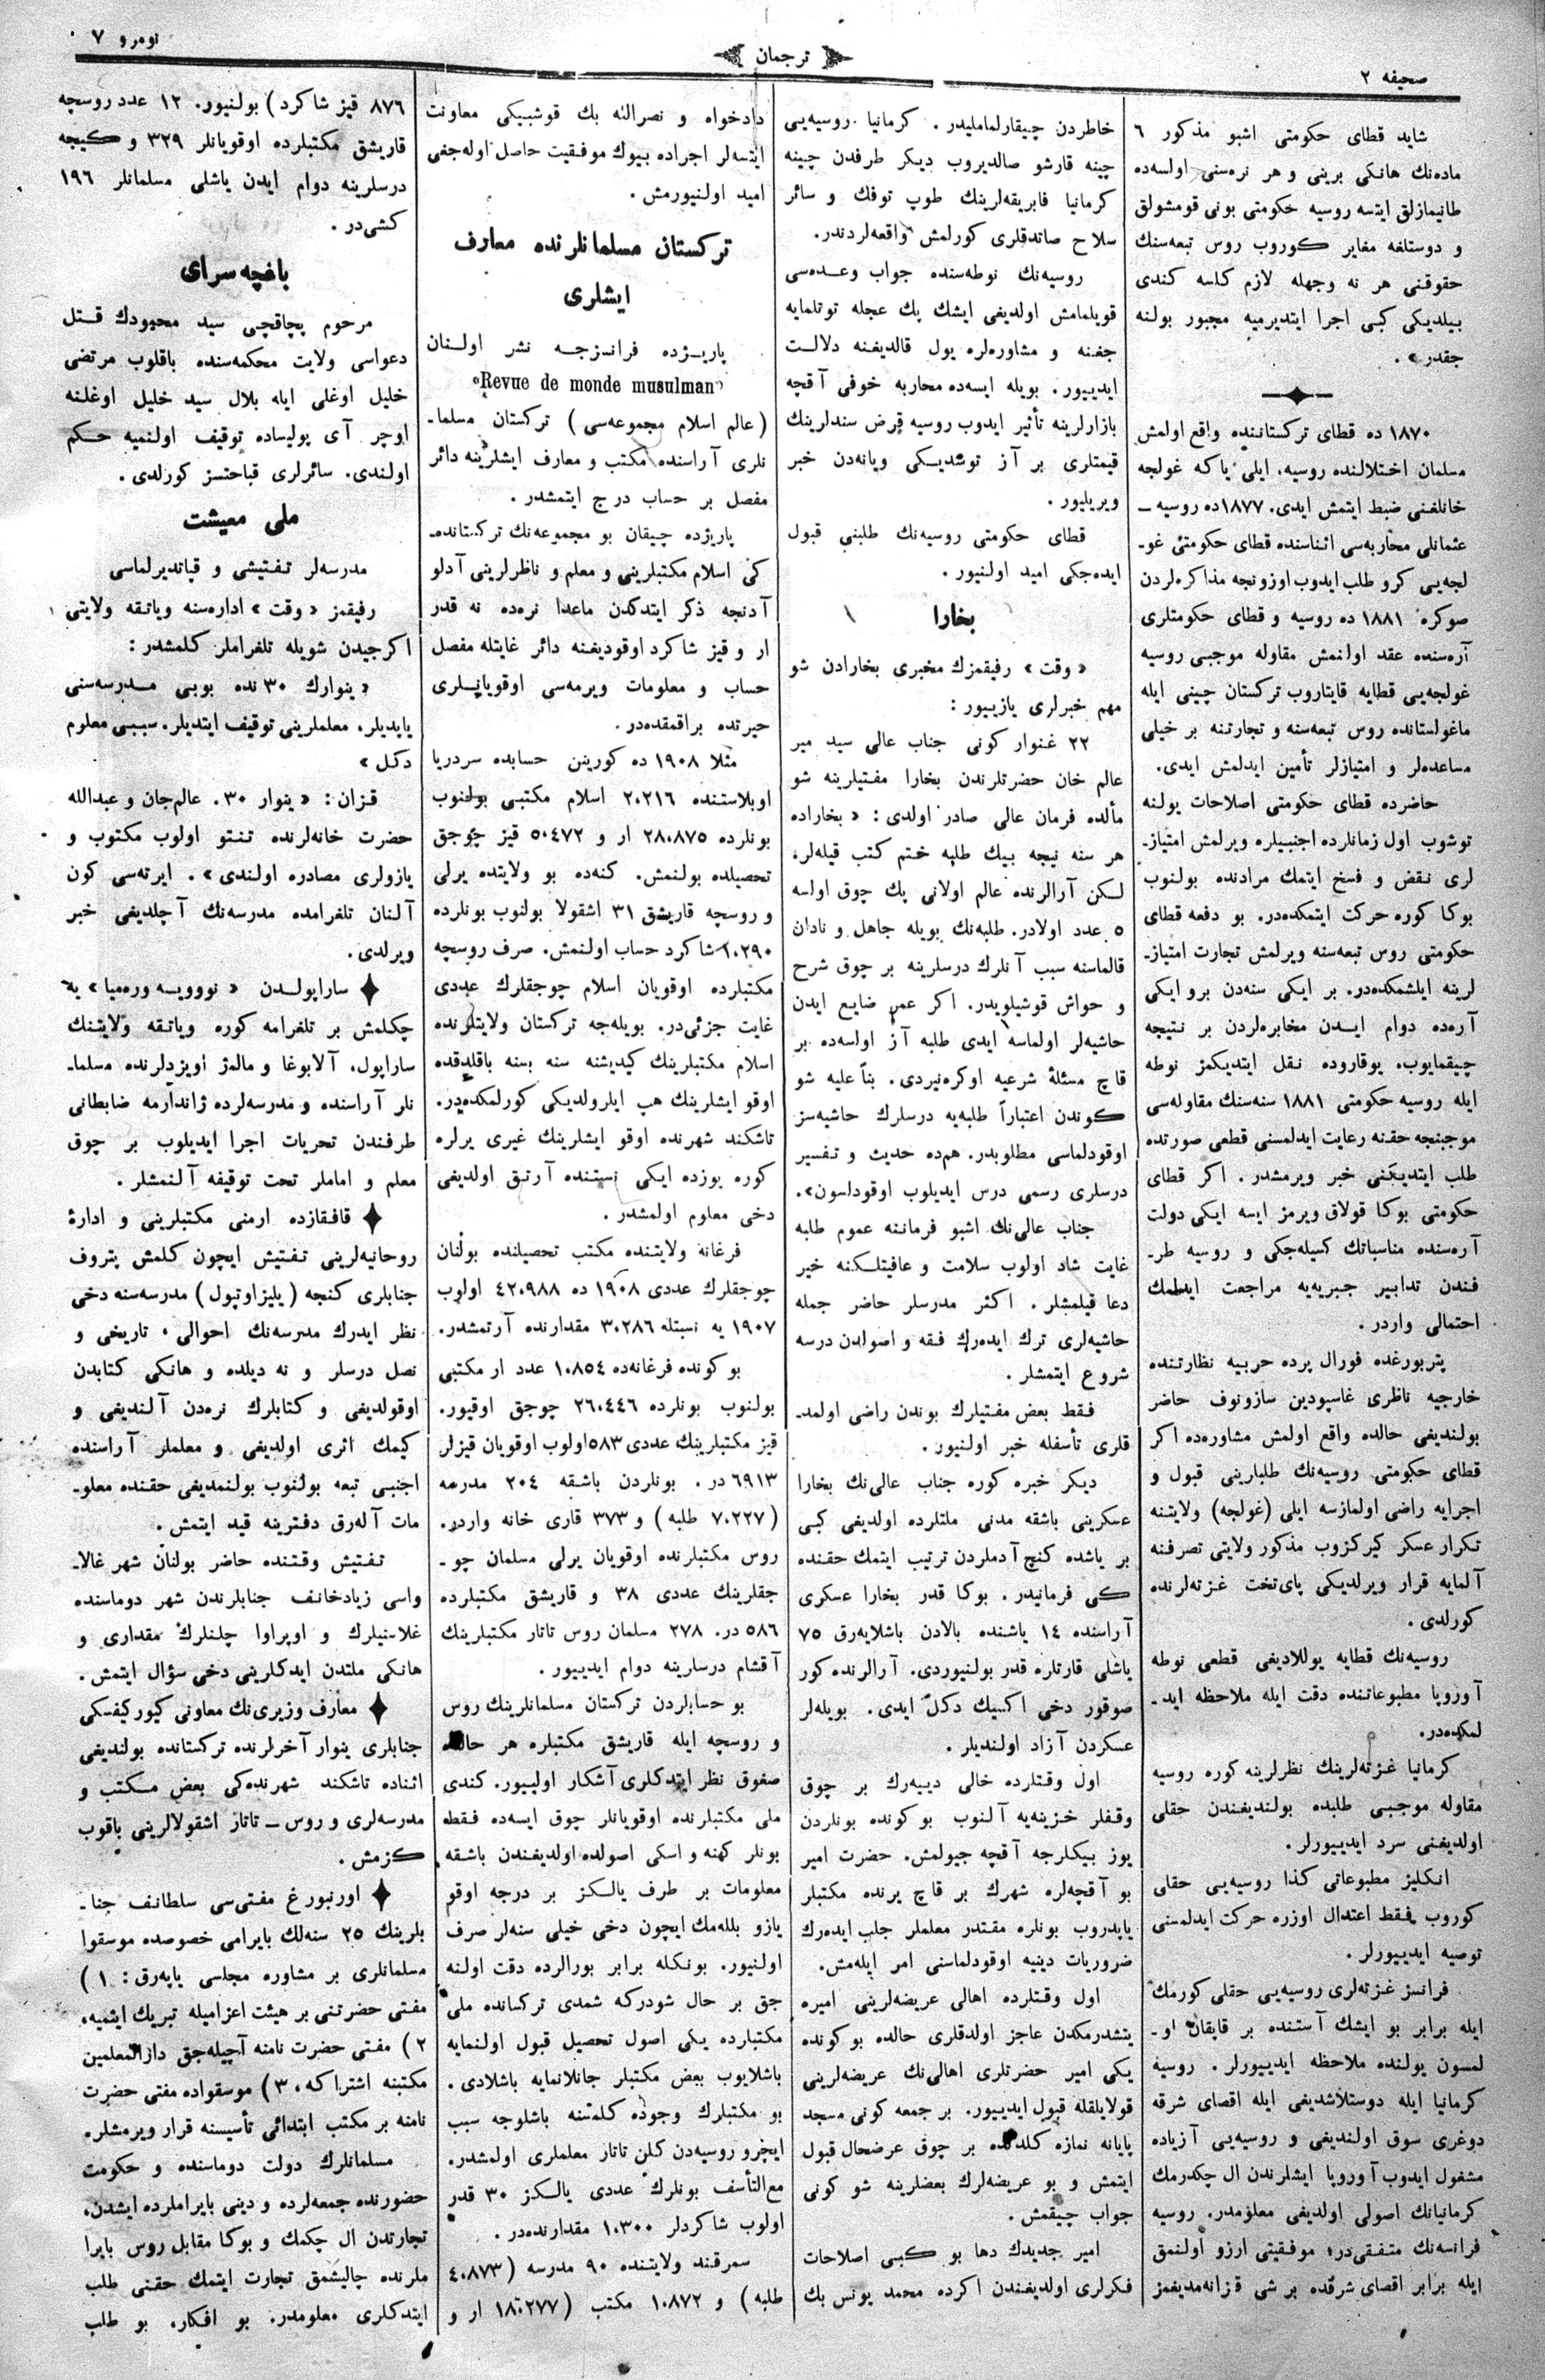 صحیفه ۲
ترجمان
نومرو ۷
شاید قطای حکومتی اشبو مذکور ۶
ماده‌نك هانکی برینی و هر نره‌سنی اولسه‌ده
طانیمازلق ایتسه روسیه حکومتی بونی قومشولق
و دوستلغه مغایر کوروب روس تبعه‌سنك
حقوقنی هر نه وجهله لازم کلسه کندی
بیلدیکی کبی اجرا ایتدیرمیه مجبور بولنه
جقدر».
۱۸۷۰ ده قطای ترکستاننده واقع اولمش
مسلمان اختلالنده روسیه، ایلی یا که غولجه
خانلغنی ضبط ایتمش ایدی. ۱۸۷۷ده روسیه ـ
عثمانلی محاربه‌سی اثناسنده قطای حکومتی غو-
لجه‌یی کرو طلب ایدوب اوزونجه مذاکره‌لردن
صوکره ۱۸۸۱ ده روسیه و قطای حکومتلری
آره‌سنده عقد اولنمش مقاوله موجبی روسیه
غولجه‌یی قطایه قایتاروب ترکستان چینی ایله
ماغولستانده روس تبعه‌سنه و تجارتنه بر خیلی
مساعده‌لر و امتیازلر تأمین ایدلمش ایدی.
حاضرده قطای حکومتی اصلاحات یولنه
توشوب اول زمانلرده اجنبیلره ویرلمش امتیاز-
لری نقض و فسخ ایتمك مرادنده بولنوب
بوکا کوره حرکت ایتمکده‌در. بو دفعه قطای
حکومتی روس تبعه‌سنه ویرلمش تجارت امتیاز-
لرینه ایلشمکده‌در. بر ایکی سنه‌دن برو ایکی
آره‌ده دوام ایدن مخابره‌لردن بر نتیجه
چیقمایوب، یوقاروده نقل ایتدیکمز نوطه
ایله روسیه حکومتی ۱۸۸۱ سنه‌سنك مقاوله‌سی
موجبنجه حقنه رعایت ایدلمسنی قطعی صورتده
طلب ایتدیکنی خبر ویرمشدر. اکر قطای
حکومتی بوکا قولاق ویرمز ایسه ایکی دولت
آره‌سنده مناسباتك کسیله‌جکی و روسیه طر-
فندن تدابیر جبریه‌یه مراجعت ایدلمك
احتمالی واردر.
پتربورغده فورال پرده حربیه نظارتنده
خارجیه ناظری غاسپودین سازونوف حاضر
بولندیغی حالده واقع اولمش مشاوره‌ده اکر
قطای حکومتی روسیه‌نك طلبارینی قبول و
اجرایه راضی اولمازسه ایلی (غولجه) ولایتنه
تکرار عسکر کیرکزوب مذکور ولایتی تصرفنه
آلمایه قرار ویرلدیکی پای‌تخت غزته‌لرنده
کورلدی.
روسیه‌نك قطایه یوللادیغی قطعی نوطه
آوروپا مطبوعاتنده دقت ایله ملاحظه اید-
لمکده‌در.
کرمانیا غزته‌لرینك نظرلرینه کوره روسیه
مقاوله موجبی طلبده بولندیغندن حقلی
اولدیغنی سرد ایدییورلر.
انکلیز مطبوعاتی کذا روسیه‌یی حقلی
کوروب فقط اعتدال اوزره حرکت ایدلمسنی
توصیه ایدییورلر.
فرانسز غزته‌لری روسیه‌یی حقلی کورمك
ایله برابر بو ایشك آستنده بر قاپقان او-
لمسون یولنده ملاحظه ایدییورلر. روسیه
کرمانیا ایله دوستلاشدیغی ایله اقصای شرقه
دوغری سوق اولندیغی و روسیه‌یی آزیاده
مشغول ایدوب آوروپا ایشلرندن ال چکدرمك
کرمانیانك اصولی اولدیغی معلومدر. روسیه
فرانسه‌نك متفقی‌در؛ موفقیتی ارزو اولنمق
ایله برابر اقصای شرقده بر شی قزانه‌مدیغمز
خاطردن چیقارلمامالیدر. کرمانیا روسیه‌یی
چینه قارشو صالدیروب دیکر طرفدن چینه
کرمانیا فابریقه‌لرینك طوپ توفك و سائر
سلاح صاتدقلری کورلمش واقعه‌لردندر.
روسیه‌نك نوطه‌سنده جواب وعده‌سی
قویلمامش اولدیغی ایشك پك عجله توتلمایه
جغنه و مشاوره‌لره یول قالدیغنه دلالت
ایدییور. بویله ایسه‌ده محاربه خوفی آقچه
بازارلرینه تأثیر ایدوب روسیه قرض سندلرینك
قیمتلری بر آز توشدیکی ویانه‌دن خبر
ویریلیور.
قطای حکومتی روسیه‌نك طلبنی قبول
ایده‌جکی امید اولنیور.
بخارا
«وقت» رفیقمزك مخبری بخارادن شو
مهم خبرلری یازییور:
۲۲ غنوار کونی جناب عالی سید میر
عالم خان حضرتلرندن بخارا مفتیلرینه شو
مألده فرمان عالی صادر اولدی: «بخاراده
هر سنه نیچه بیك طلبه ختم کتب قیله‌لر،
لکن آرالرنده عالم اولانی پك چوق اولسه
۵ عدد اولادر. طلبه‌نك بویله جاهل و نادان
قالماسنه سبب آنلرك درسلرینه بر چوق شرح
و حواش قوشیلویدر. اکر عمر ضایع ایدن
حاشیه‌لر اولماسه ایدی طلبه آز اولسه‌ده بر
قاچ مسئلۀ شرعیه اوکره‌نیردی. بناً علیه شو
کوندن اعتباراً طلبه‌یه درسلرك حاشیه‌سز
اوقودلماسی مطلوبدر. هم‌ده حدیث و تفسیر
درسلری رسمی درس ایدیلوب اوقودلسون».
جناب عالی‌نك اشبو فرماننه عموم طلبه
غایت شاد اولوب سلامت و عافیتلکنه خیر
دعا قیلمشلر. اکثر مدرسلر حاضر جمله
حاشیه‌لری ترك ایده‌رك فقه و اصولدن درسه
شروع ایتمشلر.
فقط بعض مفتیلرك بوندن راضی اولمد-
قلری تأسفله خبر اولنیور.
دیکر خبره کوره جناب عالی‌نك بخارا
عسکرینی باشقه مدنی ملتلرده اولدیغی کبی
بر یاشده کنج آدملردن ترتیب ایتمك حقنده
کی فرمانیدر. بوکا قدر بخارا عسکری
آراسنده ۱۴ یاشنده بالادن باشلایه‌رق ۷۵
یاشلی قارتلره قدر بولنیوردی. آرالرنده کور
صوقور دخی اکسیك دکل ایدی. بویله‌لر
عسکردن آزاد اولندیلر.
اول وقتلرده خالی دییه‌رك بر چوق
وقفلر خزینه‌یه آلنوب بو کونده بونلردن
یوز بیکلرجه آقچه جیولمش. حضرت امیر
بو آقچه‌لره شهرك بر قاچ یرنده مکتبلر
یاپدروب بونلره مقتدر معلملر جلب ایده‌رك
ضروریات دینیه اوقودلماسنی امر ایله‌مش.
اول وقتلرده اهالی عریضه‌لرینی امیره
یتشدرمکدن عاجز اولدقلری حالده بو کونده
یکی امیر حضرتلری اهالی‌نك عریضه‌لرینی
قولایلقله قبول ایدییور. بر جمعه کونی مسجد
پایانه نمازه کلدکده بر چوق عرضحال قبول
ایتمش و بو عریضه‌لرك بعضلرینه شو کونی
جواب چیقمش.
امیر جدیدك دها بو کبی اصلاحات
فکرلری اولدیغندن اکرده محمد یونس بك
دادخواه و نصرالله بك قوشبیکی معاونت
ایتسه‌لر اجراده بیوك موفقیت حاصل اوله‌جغی
امید اولنیورمش.
ترکستان مسلمانلرنده معارف
ایشلری
پاریژده فرانزجه نشر اولنان
«Revue de monde musulman»
(عالم اسلام مجموعه‌سی) ترکستان مسلما-
نلری آراسنده مکتب و معارف ایشلرینه دائر
مفصل بر حساب درج ایتمشدر.
پاریژده چیقان بو مجموعه‌نك ترکستانده-
کی اسلام مکتبلرینی و معلم و ناظرلرینی آدلو
آدنجه ذکر ایتدکدن ماعدا نره‌ده نه قدر
ار و قیز شاکرد اوقودیغنه دائر غایتله مفصل
حساب و معلومات ویرمه‌سی اوقویانلری
حیرتده براقمقده‌در.
مثلا ۱۹۰۸ ده کورینن حسابده سردریا
اوبلاستنده ۲۰۲۱۶ اسلام مکتبی بولنوب
بونلرده ۲۸۰۸۷۵ ار و ۵۰۴۷۲ قیز چوجق
تحصیلده بولنمش. کنه‌ده بو ولایتده یرلی
و روسچه قاریشق ۳۱ اشقولا بولنوب بونلرده
۱۰۲۹۰ شاکرد حساب اولنمش. صرف روسچه
مکتبلرده اوقویان اسلام چوجقلرك عددی
غایت جزئی‌در. بویله‌جه ترکستان ولایتلرنده
اسلام مکتبلرینك کیدیشنه سنه بسنه باقلدقده
اوقو ایشلرینك هپ ایلرولدیکی کورلمکده‌در.
تاشکند شهرنده اوقو ایشلرینك غیری یرلره
کوره یوزده ایکی نسبتنده آرتق اولدیغی
دخی معلوم اولمشدر.
فرغانه ولایتنده مکتب تحصیلنده بولنان
چوجقلرك عددی ۱۹۰۸ ده ۴۲۰۹۸۸ اولوب
۱۹۰۷ یه نسبتله ۳۰۲۸۶ مقدارنده آرتمشدر.
بو کونده فرغانه‌ده ۱۰۸۵۴ عدد ار مکتبی
بولنوب بونلرده ۲۶۰۴۴۶ چوجق اوقیور.
قیز مکتبلرینك عددی ۵۸۳ اولوب اوقویان قیزلر
۶۹۱۳ در. بونلردن باشقه ۲۰۴ مدرسه
(۷۰۲۲۷ طلبه) و ۳۷۳ قاری خانه واردر.
روس مکتبلرنده اوقویان یرلی مسلمان چو-
جقلرینك عددی ۳۸ و قاریشق مکتبلرده
۵۸۶ در. ۲۷۸ مسلمان روس تاتار مکتبلرینك
آقشام درسارینه دوام ایدییور.
بو حسابلردن ترکستان مسلمانلرینك روس
و روسچه ایله قاریشق مکتبلره هر حالده
صغوق نظر ایتدکلری آشکار اولییور. کندی
ملی مکتبلرنده اوقویانلر چوق ایسه‌ده فقط
بونلر کهنه و اسکی اصولده اولدیغندن باشقه
معلومات بر طرف یالکز بر درجه اوقو
یازو بلله‌مك ایچون دخی خیلی سنه‌لر صرف
اولنیور. بونکله برابر بورالرده دقت اولنه
جق بر حال شودرکه شمدی ترکسانده ملی
مکتبارده یکی اصول تحصیل قبول اولنمایه
باشلایوب بعض مکتبلر جانلانمایه باشلادی.
بو مکتبلرك وجوده کلمشنه باشلوجه سبب
ایچرو روسیه‌دن کلن تاتار معلملری اولمشدر.
مع‌التأسف بونلرك عددی یالکز ۳۰ قدر
اولوب شاکردلر ۱۰۳۰۰ مقدارنده‌در.
سمرقند ولایتنده ۹۰ مدرسه (۴۰۸۷۳
طلبه) و ۱۰۸۷۲ مکتب (۱۸۰۲۷۷ ار و
۸۷۶ قیز شاکرد) بولنیور. ۱۲ عدد روسچه
قاریشق مکتبلرده اوقویانلر ۳۲۹ و کیجه
درسلرینه دوام ایدن یاشلی مسلمانلر ۱۹۶
کشی‌در.
باغچه سرای
مرحوم پچاقچی سید محمودك قتل
دعواسی ولایت محکمه‌سنده باقلوب مرتضی
خلیل اوغلی ایله بلال سید خلیل اوغلنه
اوچر آی پولیساده توقیف اولنمیه حکم
اولندی. سائرلری قباحتسز کورلدی.
ملی معیشت
مدرسه‌لر تفتیشی و قپاتدیرلماسی
رفیقمز «وقت» اداره‌سنه ویاتقه ولایتی
اکرجیدن شویله تلغراملر کلمشدر:
«ینوارك ۳۰ نده بوبی مدرسه‌سنی
یاپدیلر، معلملرینی توقیف ایتدیلر. سببی معلوم
دکل»
قزان: «ینوار ۳۰. عالم‌جان و عبدالله
حضرت خانه‌لرنده تنتو اولوب مکتوب و
یازولری مصادره اولندی». ایرته‌سی کون
آلنان تلغرامده مدرسه‌نك آچلدیغی خبر
ویرلدی.
ساراپولدن «نوویه وره‌میا» یه
چکلمش بر تلغرامه کوره ویاتقه ولایتنك
ساراپول، آلابوغا و مالمژ اویزدلرنده مسلما-
نلر آراسنده و مدرسه‌لرده ژاندارمه ضابطانی
طرفندن تحریات اجرا ایدیلوب بر چوق
معلم و اماملر تحت توقیفه آلنمشلر.
قافقازده ارمنی مکتبلرینی و ادارۀ
روحانیه‌لرینی تفتیش ایچون کلمش پتروف
جنابلری کنجه (یلیزاوتپول) مدرسه‌سنه دخی
نظر ایدرك مدرسه‌نك احوالی، تاریخی و
نصل درسلر و نه دیلده و هانکی کتابدن
اوقولدیغی و کتابلرك نره‌دن آلندیغی و
کیمك اثری اولدیغی و معلملر آراسنده
اجنبی تبعه بولنوب بولنمدیغی حقنده معلو-
مات آله‌رق دفترینه قید ایتمش.
تفتیش وقتنده حاضر بولنان شهر غالا-
واسی زیادخانف جنابلرندن شهر دوماسنده
غلاسنیلرك و اوپراوا چلنلرك مقداری و
هانکی ملتدن ایدکلرینی دخی سؤال ایتمش.
معارف وزیری‌نك معاونی کیورکیفسکی
جنابلری ینوار آخرلرنده ترکستانده بولندیغی
اثناده تاشکند شهرنده‌کی بعض مکتب و
مدرسه‌لری و روس ـ تاتاز اشقولالرینی باقوب
کزمش.
اورنبورغ مفتی‌سی سلطانف جنا-
بلرینك ۲۵ سنه‌لك بایرامی خصوصده موسقوا
مسلمانلری بر مشاوره مجلسی یاپه‌رق: ۱)
مفتی حضرتنی بر هیئت اعزامیله تبریك ایتمیه،
۲) مفتی حضرت نامنه آچیله‌جق دارالمعلمین
مکتبنه اشتراکه، ۳) موسقواده مفتی حضرت
نامنه بر مکتب ابتدائی تأسیسنه قرار ویرمشلر.
مسلمانلرك دولت دوماسنده و حکومت
حضورنده جمعه‌لرده و دینی بایراملرده ایشدن،
تجارتدن ال چکمك و بوکا مقابل روس بایرا
ملرنده چالیشمق تجارت ایتمك حقنی طلب
ایتدکلری معلومدر. بو افکار، بو طلب